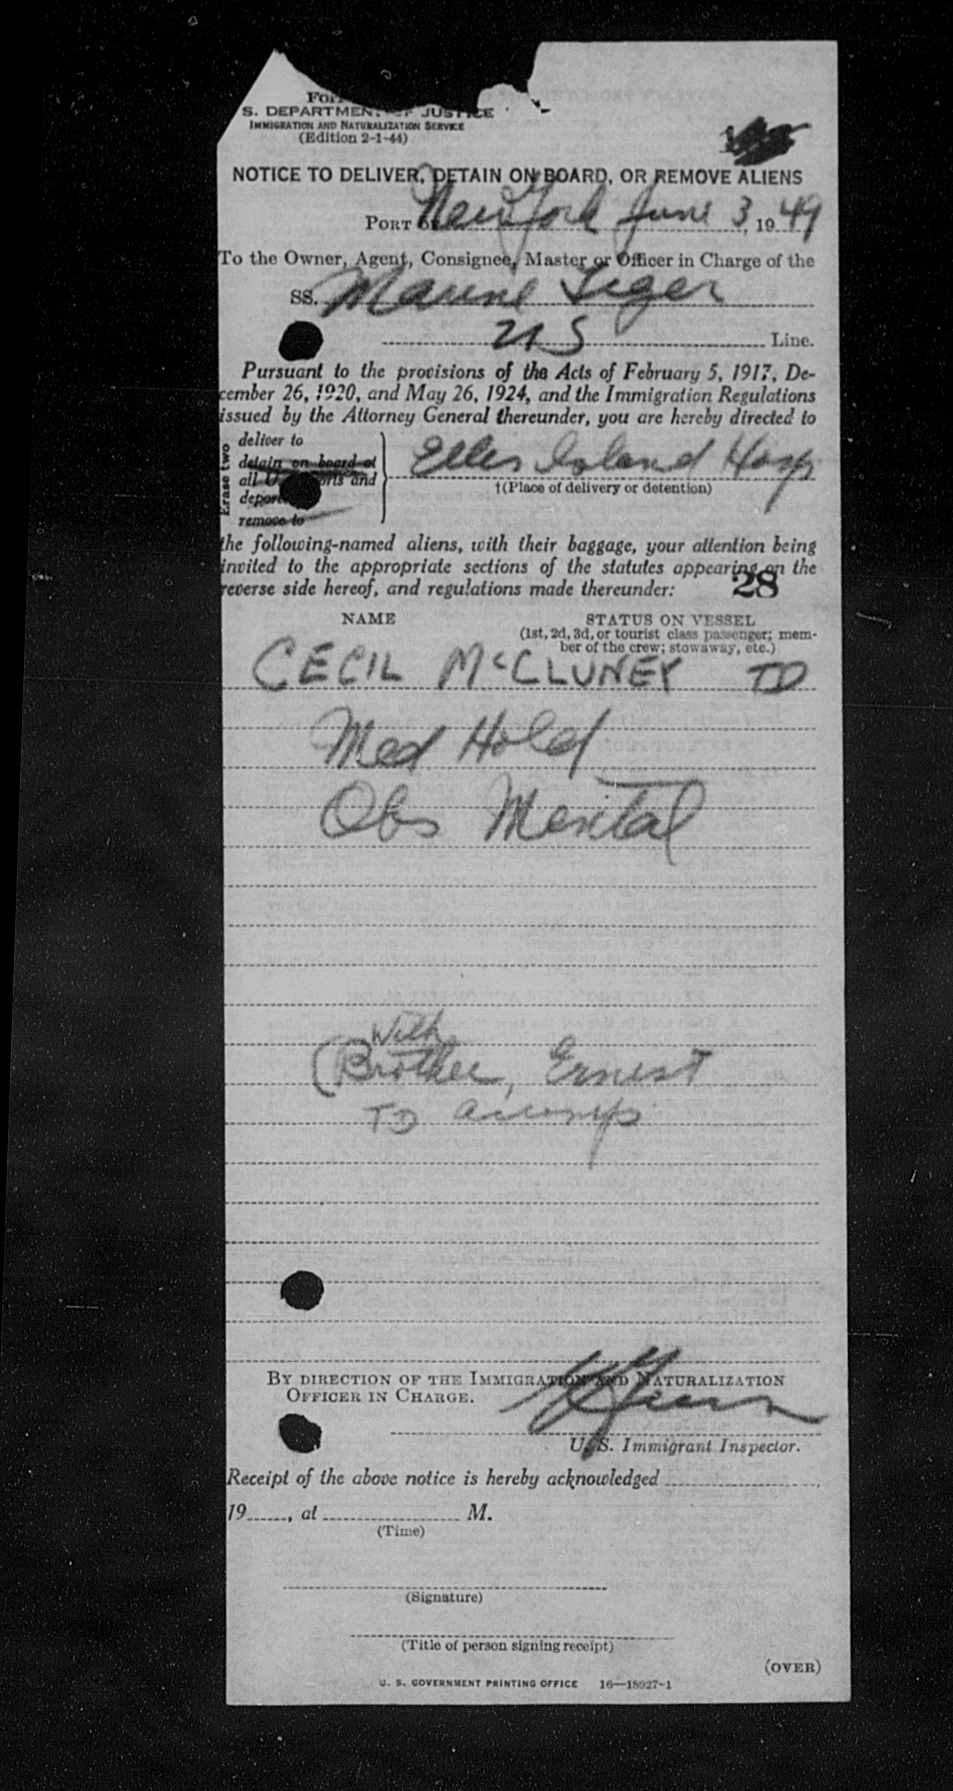 S. DEPARTMENT OF JUSTICE
IMMIGRATION AND NATURALIZATION SERVICE
(Edition 2-1-44)
NOTICE TO DELIVER, DETAIN ON BOARD, OR REMOVE ALIENS
PORT OF New York June 3, 1949
To the Owner, Agent, Consignee, Master or Officer in Charge of the
SS. Marine Tiger
US Line.
Pursuant to the provisions of the Acts of February 5, 1917, De-
cember 26, 1920, and May 26, 1924, and the Immigration Regulations
issued by the Attorney General thereunder, you are hereby directed to
Erase two
deliver to
detain on board at
all U. ports and
deport
remove to
Ellis Island Hosp
†(Place of delivery or detention)
the following-named aliens, with their baggage, your attention being
invited to the appropriate sections of the statutes appearing on the
reverse side hereof, and regulations made thereunder: 28
NAME STATUS ON VESSEL
(1st, 2d, 3d, or tourist class passenger; mem-
ber of the crew; stowaway, etc.)
CECIL McCLUNEY TD
Med Hold
Obs Mental
With
(Brother, Ernest
TD accomp
BY DIRECTION OF THE IMMIGRATION AND NATURALIZATION
OFFICER IN CHARGE.
U. S. Immigrant Inspector.
Receipt of the above notice is hereby acknowledged
19, at M.
(Time)
(Signature)
(Title of person signing receipt)
(OVER)
U. S. GOVERNMENT PRINTING OFFICE 16—18927-1